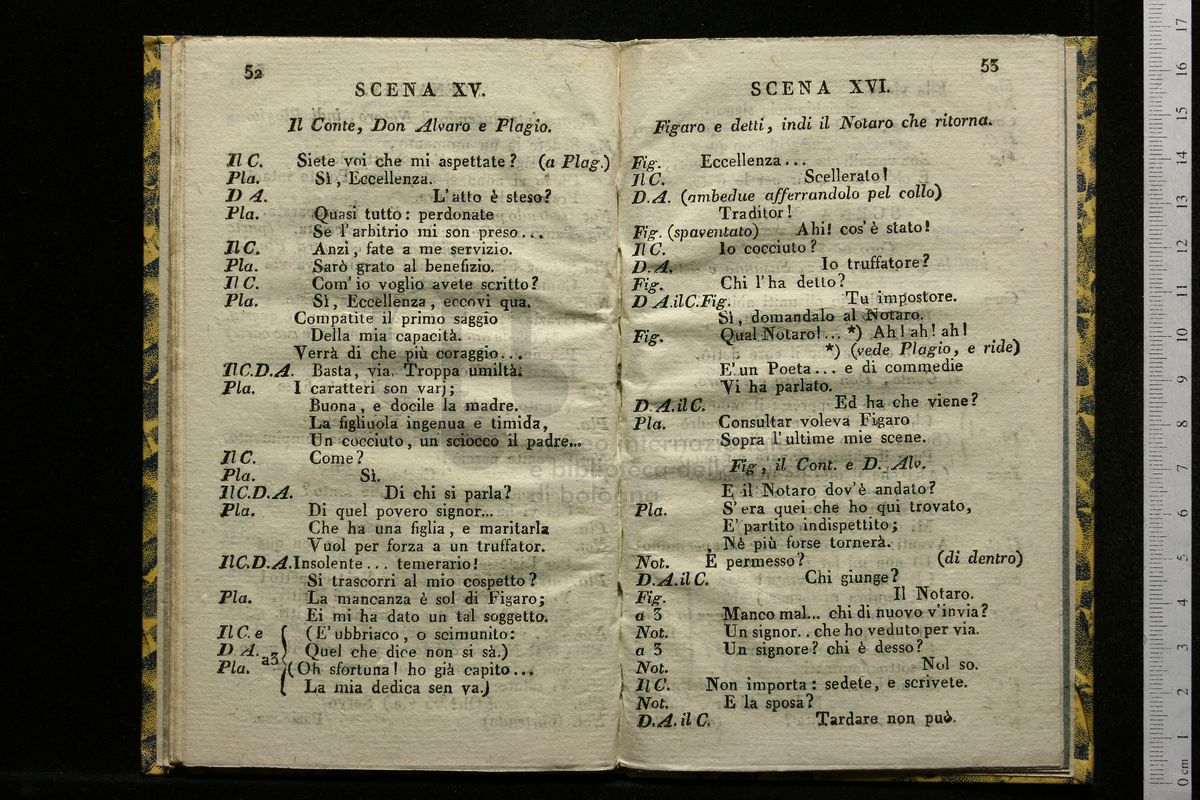 52
SCENA XV.
Il Conte, Don Alvaro e Plagio.
Il C. Siete voi che mi aspettate? (a Plag.)
Pla. Sì, Eccellenza.
D A. L'atto è steso?
Pla. Quasi tutto: perdonate
Se l'arbitrio mi son preso...
Il C. Anzi, fate a me servizio.
Pla. Sarò grato al benefizio.
Il C. Com' io voglio avete scritto?
Pla. Sì, Eccellenza, eccovi qua.
Compatite il primo saggio
Della mia capacità.
Verrà di che più coraggio...
Il C.D.A. Basta, via. Troppa umiltà.
Pla. I caratteri son varj;
Buona, e docile la madre.
La figliuola ingenua e timida,
Un cocciuto, un sciocco il padre...
Il C. Come?
Pla. Sì.
Il C.D.A. Di chi si parla?
Pla. Di quel povero signor...
Che ha una figlia, e maritarla
Vuol per forza a un truffator.
Il C.D.A. Insolente... temerario!
Si trascorri al mio cospetto?
Pla. La mancanza è sol di Figaro;
Ei mi ha dato un tal soggetto.
Il C. e (E' ubbriaco, o scimunito:
D A. a3 Quel che dice non si sà.)
Pla. (Oh sfortuna! ho già capito...
La mia dedica sen va.)
53
SCENA XVI.
Figaro e detti, indi il Notaro che ritorna.
Fig. Eccellenza...
Il C. Scellerato!
D.A. (ambedue afferrandolo pel collo)
Traditor!
Fig. (spaventato) Ahi! cos'è stato!
Il C. Io cocciuto?
D.A. Io truffatore?
Fig. Chi l'ha detto?
D A.il C.Fig. Tu impostore.
Sì, domandalo al Notaro.
Fig. Qual Notaro!... *) Ah! ah! ah!
*) (vede Plagio, e ride)
E' un Poeta... e di commedie
Vi ha parlato.
D.A.il C. Ed ha che viene?
Pla. Consultar voleva Figaro
Sopra l'ultime mie scene.
Fig, il Cont. e D. Alv.
E il Notaro dov'è andato?
Pla. S'era quei che ho qui trovato,
E' partito indispettito;
Nè più forse tornerà.
Not. È permesso? (di dentro)
D.A.il C. Chi giunge?
Fig. Il Notaro.
a 3 Manco mal... chi di nuovo v'invia?
Not. Un signor.. che ho veduto per via.
a 3 Un signore? chi è desso?
Not. Nol so.
Il C. Non importa: sedete, e scrivete.
Not. E la sposa?
D.A.il C. Tardare non può.